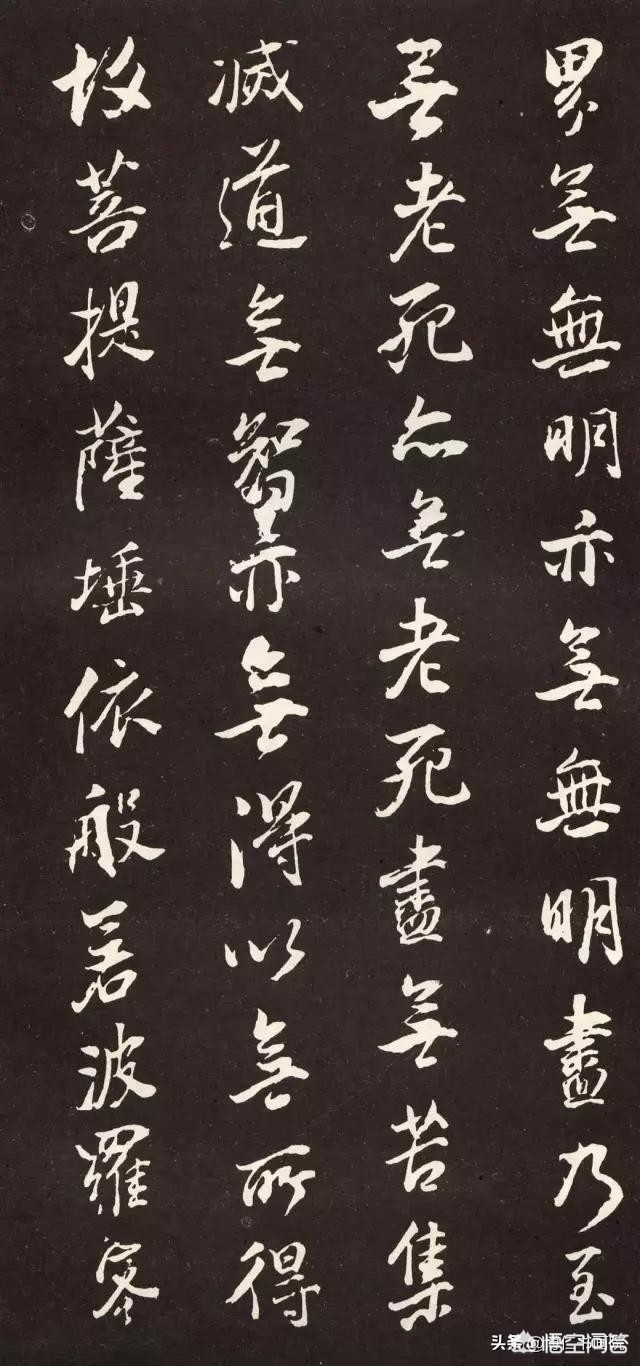 界無無明亦無無明盡乃至
無老死亦無老死盡無苦集
滅道無智亦無得以無所得
故菩提薩埵依般若波羅蜜
头条
悟空问答